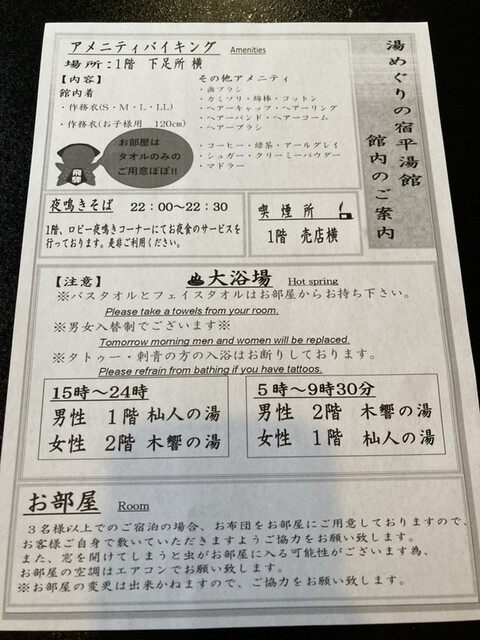 湯めぐりの宿平湯館
館内のご案内
アメニティバイキング Amenities
場所:1階 下足所横
【内容】
館内着
・作務衣(S・M・L・LL)
・作務衣(お子様用 120㎝)
お部屋は
タオルのみの
ご用意ぽぽ!!
飛騨
その他アメニティ
・歯ブラシ
・カミソリ・綿棒・コットン
・ヘアーキャップ・ヘアーリング
・ヘアーバンド・ヘアーコーム
・ヘアーブラシ
・コーヒー・緑茶・アールグレイ
・シュガー・クリーミーパウダー
・マドラー
夜鳴きそば 22:00~22:30
1階、ロビー夜鳴きコーナーにてお夜食のサービスを
行っております。是非ご利用ください。
喫煙所
1階 売店横
【注意】
大浴場 Hot spring
※バスタオルとフェイスタオルはお部屋からお持ち下さい。
Please take a towels from your room.
※男女入替制でございます※
Tomorrow morning men and women will be replaced.
※タトゥー・刺青の方の入浴はお断りしております。
Please refrain from bathing if you have tattoos.
15時~24時
男性 1階 杣人の湯
女性 2階 木響の湯
5時~9時30分
男性 2階 木響の湯
女性 1階 杣人の湯
お部屋 Room
3名様以上でのご宿泊の場合、お布団をお部屋にご用意しておりますので、
お客様ご自身で敷いていただきますようご協力をお願い致します。
また、窓を開けてしまうと虫がお部屋に入る可能性がございます為、
お部屋の空調はエアコンでお願い致します。
※お部屋の変更は出来かねますので、ご協力をお願い致します。